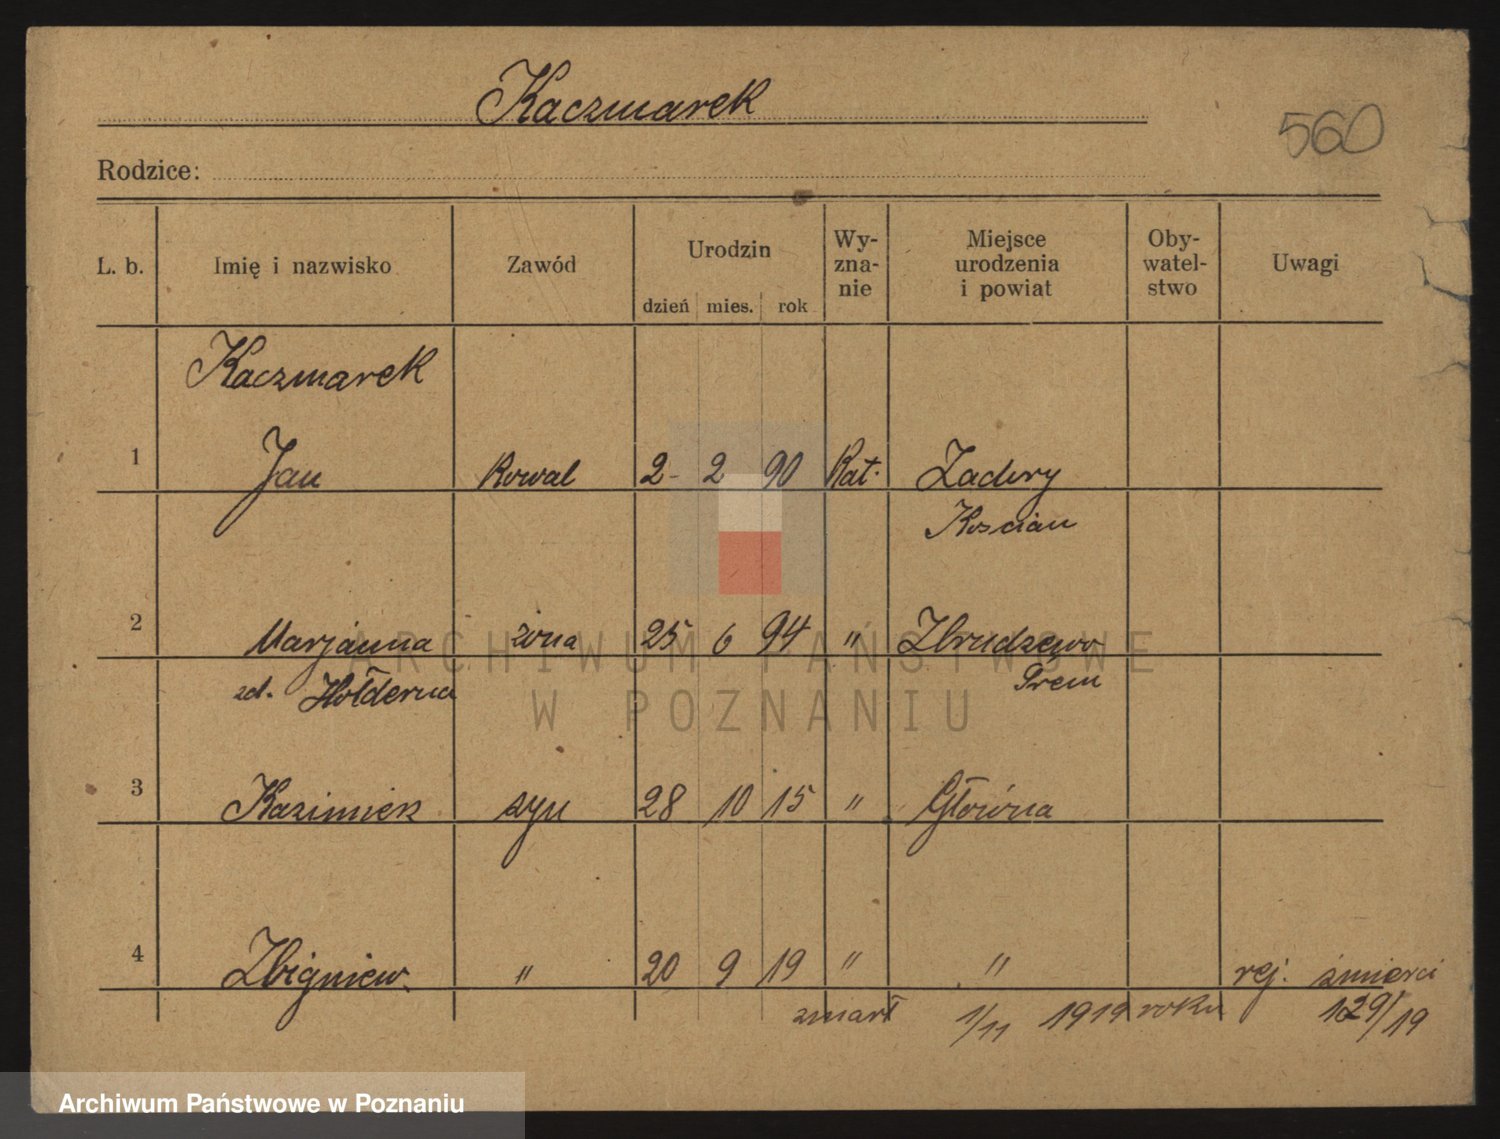 Kaczmarek
560
Rodzice:
L. b. Imię i nazwisko Zawód Urodzin dzień mies. rok Wy- zna- nie Miejsce urodzenia i powiat Oby- watel- stwo Uwagi
Kaczmarek
1 Jan Kowal 2 - 2 90 Kat. Zadory
Kościan
2 Marjanna żona 25 6 94 " Zbrudzewo
zd. Hołderna Śrem
3 Kazimierz syn 28 10 15 " Główna
4 Zbigniew. " 20 9 19 " " rej. śmierci
zmarł 1/11 1919 roku 129/19
ARCHIWUM PAŃSTWOWE
W POZNANIU
Archiwum Państwowe w Poznaniu